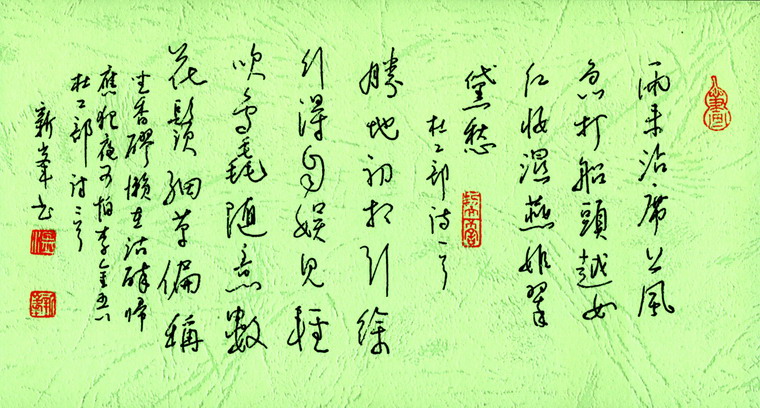 雨来沾席上風
急打船頭越女
红妝濕燕姬翠
黛愁
杜工部诗一首
勝地初相引徐
行得自娱见轻
吹鸟毳随意數
花鬚细草偏稱
坐香醪懒再沽醉歸
應犯夜可怕李金吾
杜工部诗二首
新峯书